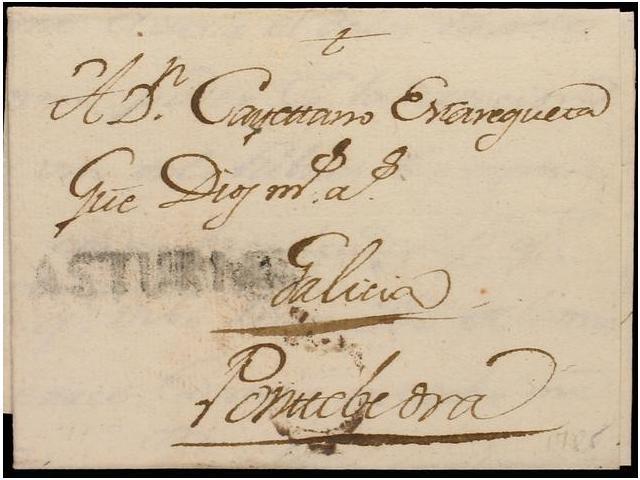 A Dn. Cayettano Extaregueta
Que Dios ms. as.
ASTURIAS
Galicia
Ponttebedra